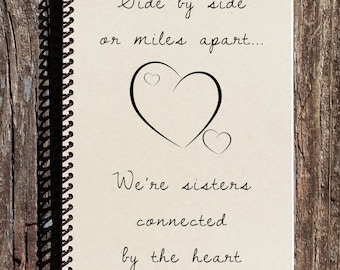 Side by side
or miles apart...
We're sisters
connected
by the heart